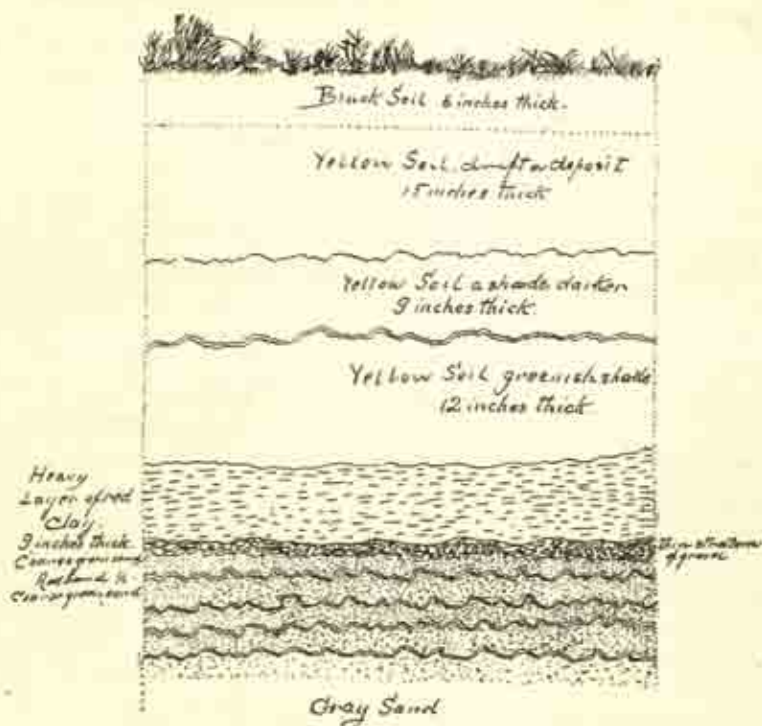 Black Soil 6 inches thick.
Yellow Soil, drift or deposit
15 inches thick
Yellow Soil a shade darker
9 inches thick.
Yellow Soil greenish shade
12 inches thick
Heavy
Layer of red
Clay.
9 inches thick.
Thin stratum
of gravel
Coarse green sand
Red band
Coarse green sand
Gray Sand